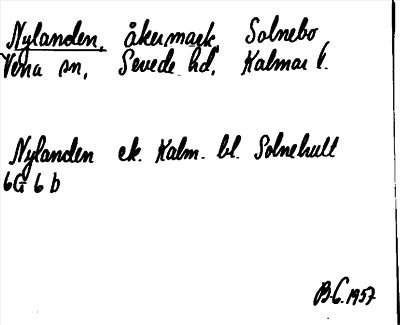 Nylanden, åkermark, Solnebo,
Vena sn, Sevede hd, Kalmar l.
Nylanden ek. Kalm. bl. Solnehult
6G 6 b
B.G. 1957